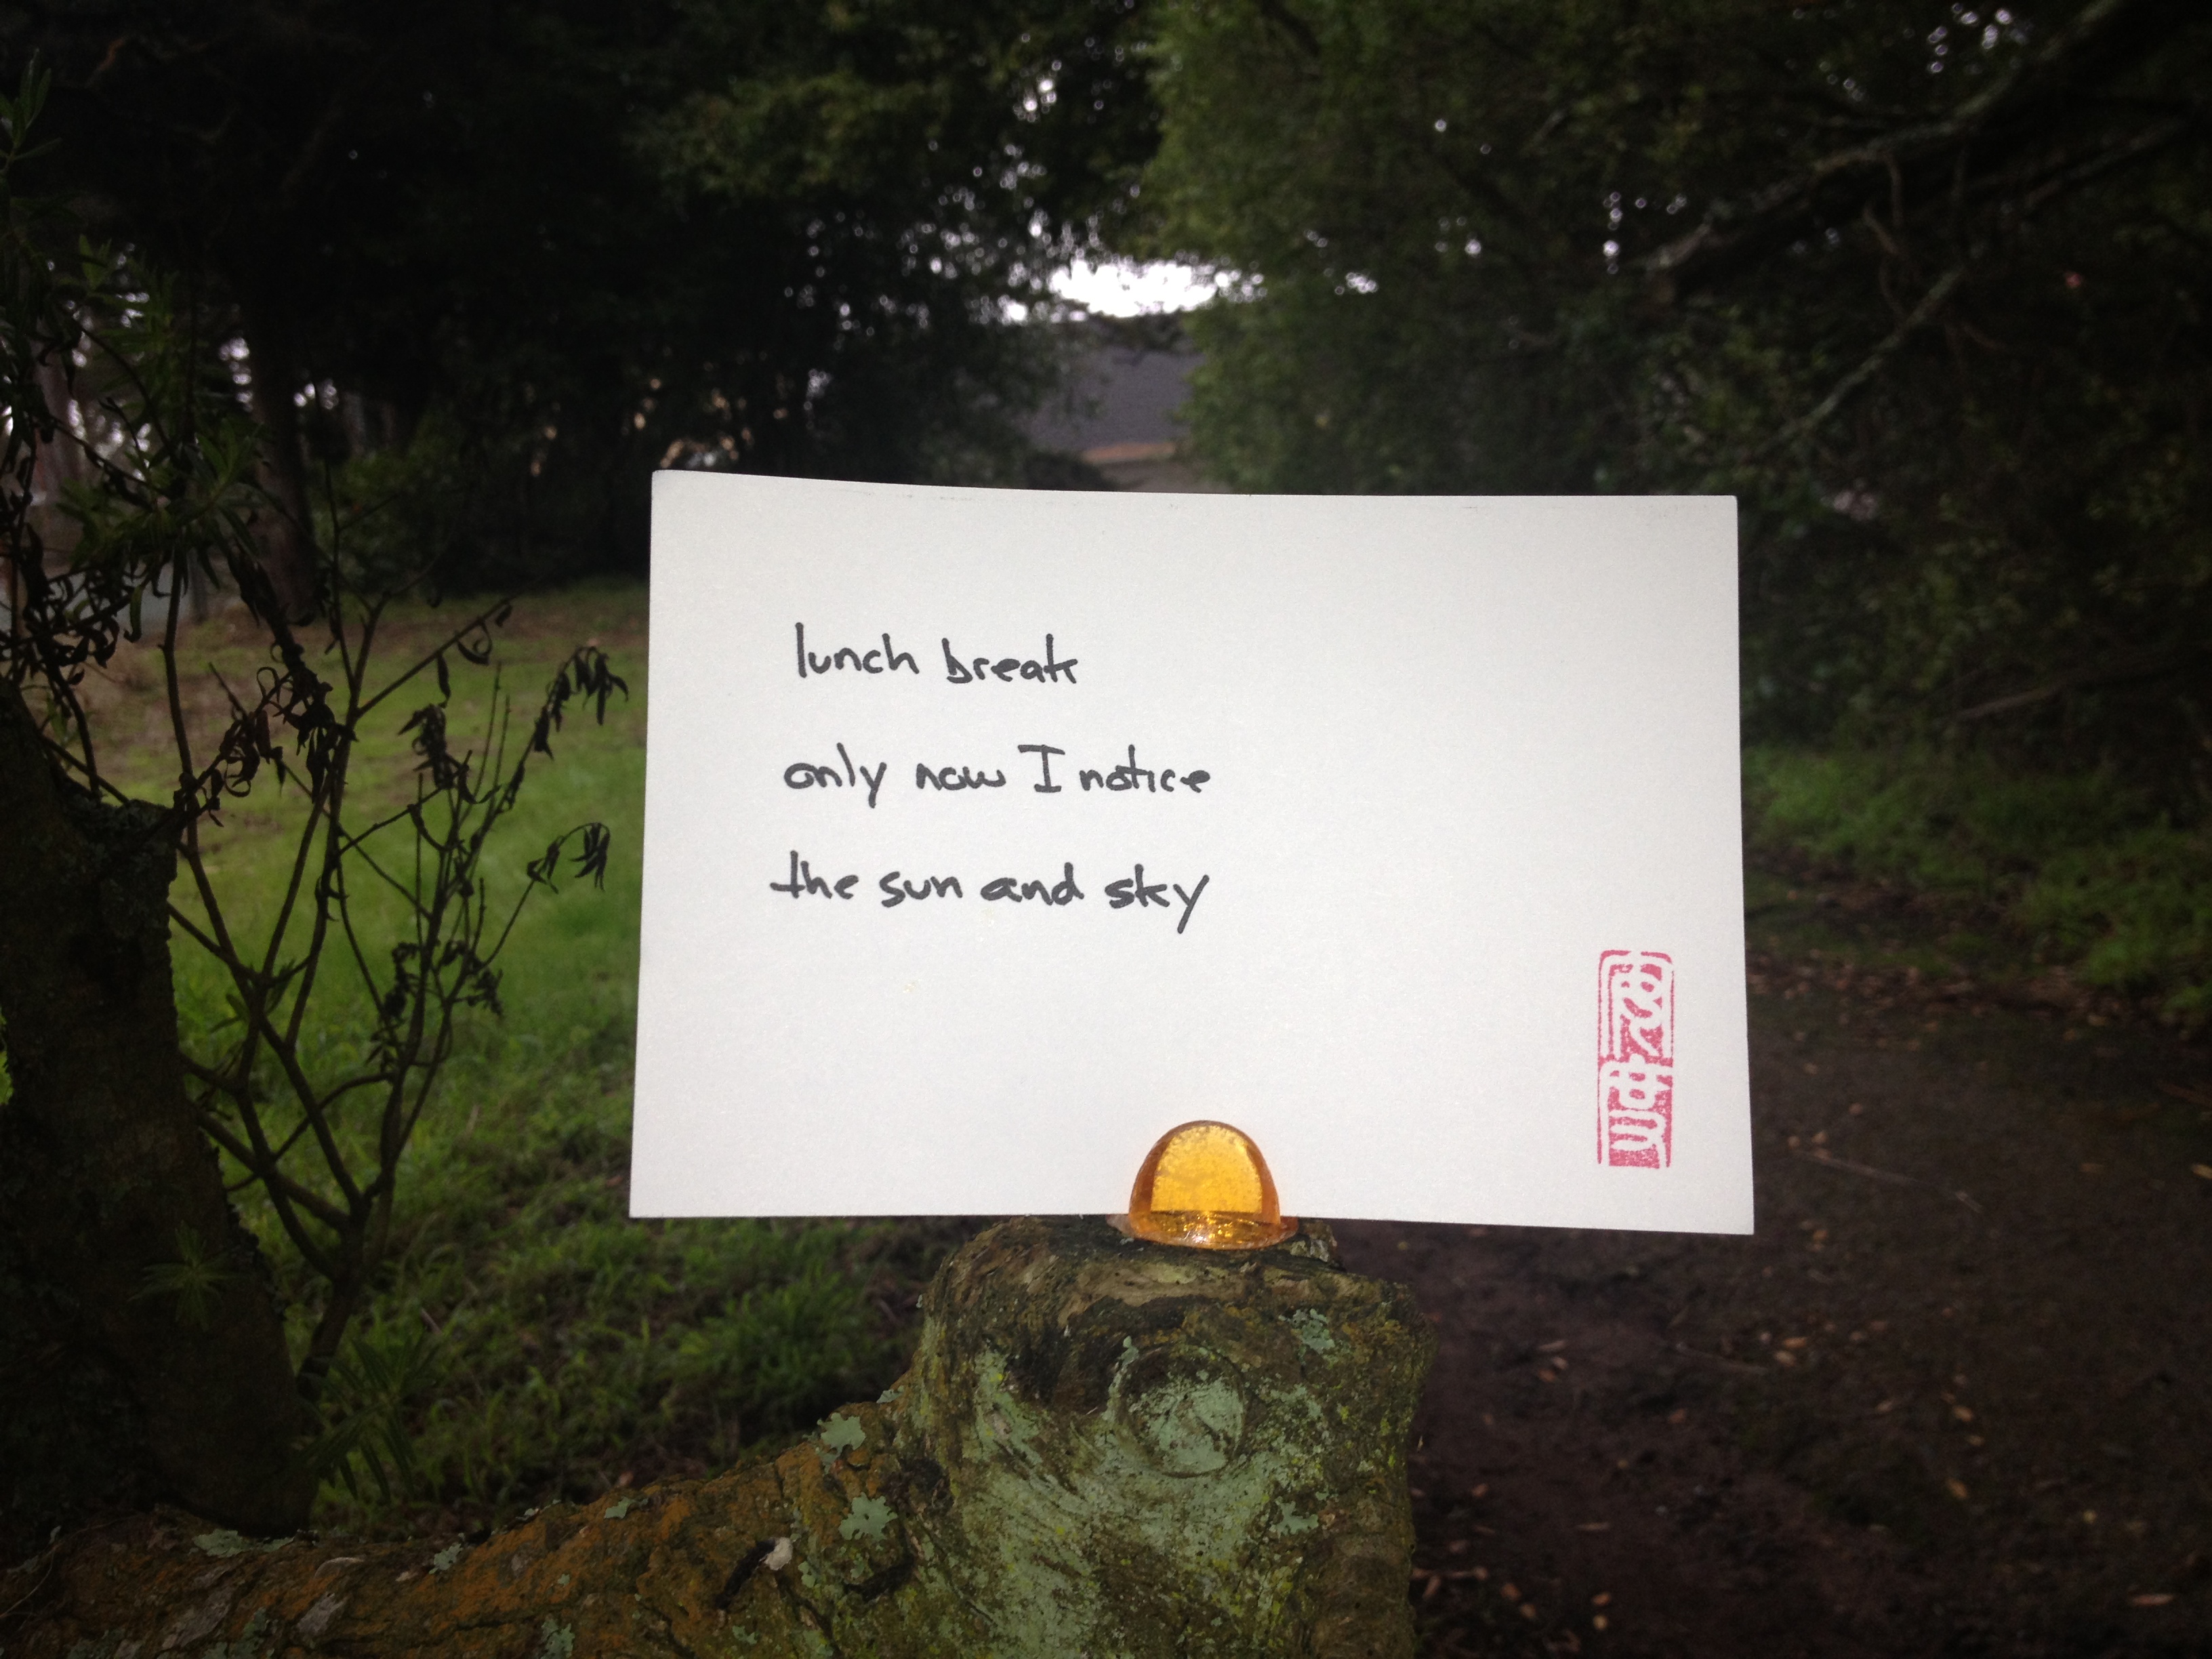 lunch break
only now I notice
the sun and sky